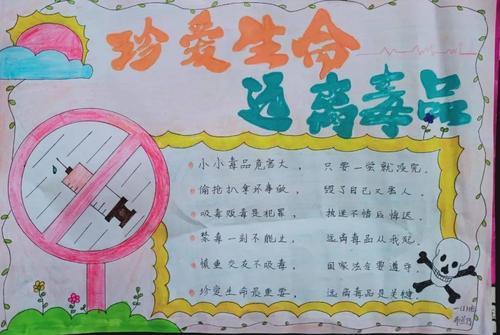 珍爱生命
远离毒品
小小毒品危害大， 只要一尝就没完。
偷抢扒拿坏事做， 毁了自己又害人。
吸毒贩毒是犯罪， 执迷不悟后悔迟。
禁毒一刻不能止， 远离毒品从我起。
慎重交友不吸毒， 国家法在要遵守。
珍爱生命最重要， 远离毒品是关键。